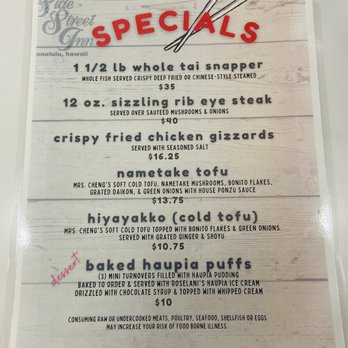 Side
Street
Inn
honolulu, hawaii
SPECIALS
1 1/2 lb whole tai snapper
WHOLE FISH SERVED CRISPY DEEP FRIED OR CHINESE-STYLE STEAMED
$35
12 oz. sizzling rib eye steak
SERVED OVER SAUTEED MUSHROOMS & ONIONS
$40
crispy fried chicken gizzards
SERVED WITH SEASONED SALT
$16.25
nametake tofu
MRS. CHENG'S SOFT COLD TOFU, NAMETAKE MUSHROOMS, BONITO FLAKES,
GRATED DAIKON, & GREEN ONIONS WITH HOUSE PONZU SAUCE
$13.75
hiyayakko (cold tofu)
MRS. CHENG'S SOFT COLD TOFU TOPPED WITH BONITO FLAKES & GREEN ONIONS.
SERVED WITH GRATED GINGER & SHOYU.
$10.75
dessert
baked haupia puffs
(3) MINI TURNOVERS FILLED WITH HAUPIA PUDDING
BAKED TO ORDER & SERVED WITH ROSELANI'S HAUPIA ICE CREAM
DRIZZLED WITH CHOCOLATE SYRUP & TOPPED WITH WHIPPED CREAM
$10
CONSUMING RAW OR UNDERCOOKED MEATS, POULTRY, SEAFOOD, SHELLFISH OR EGGS
MAY INCREASE YOUR RISK OF FOOD BORNE ILLNESS.